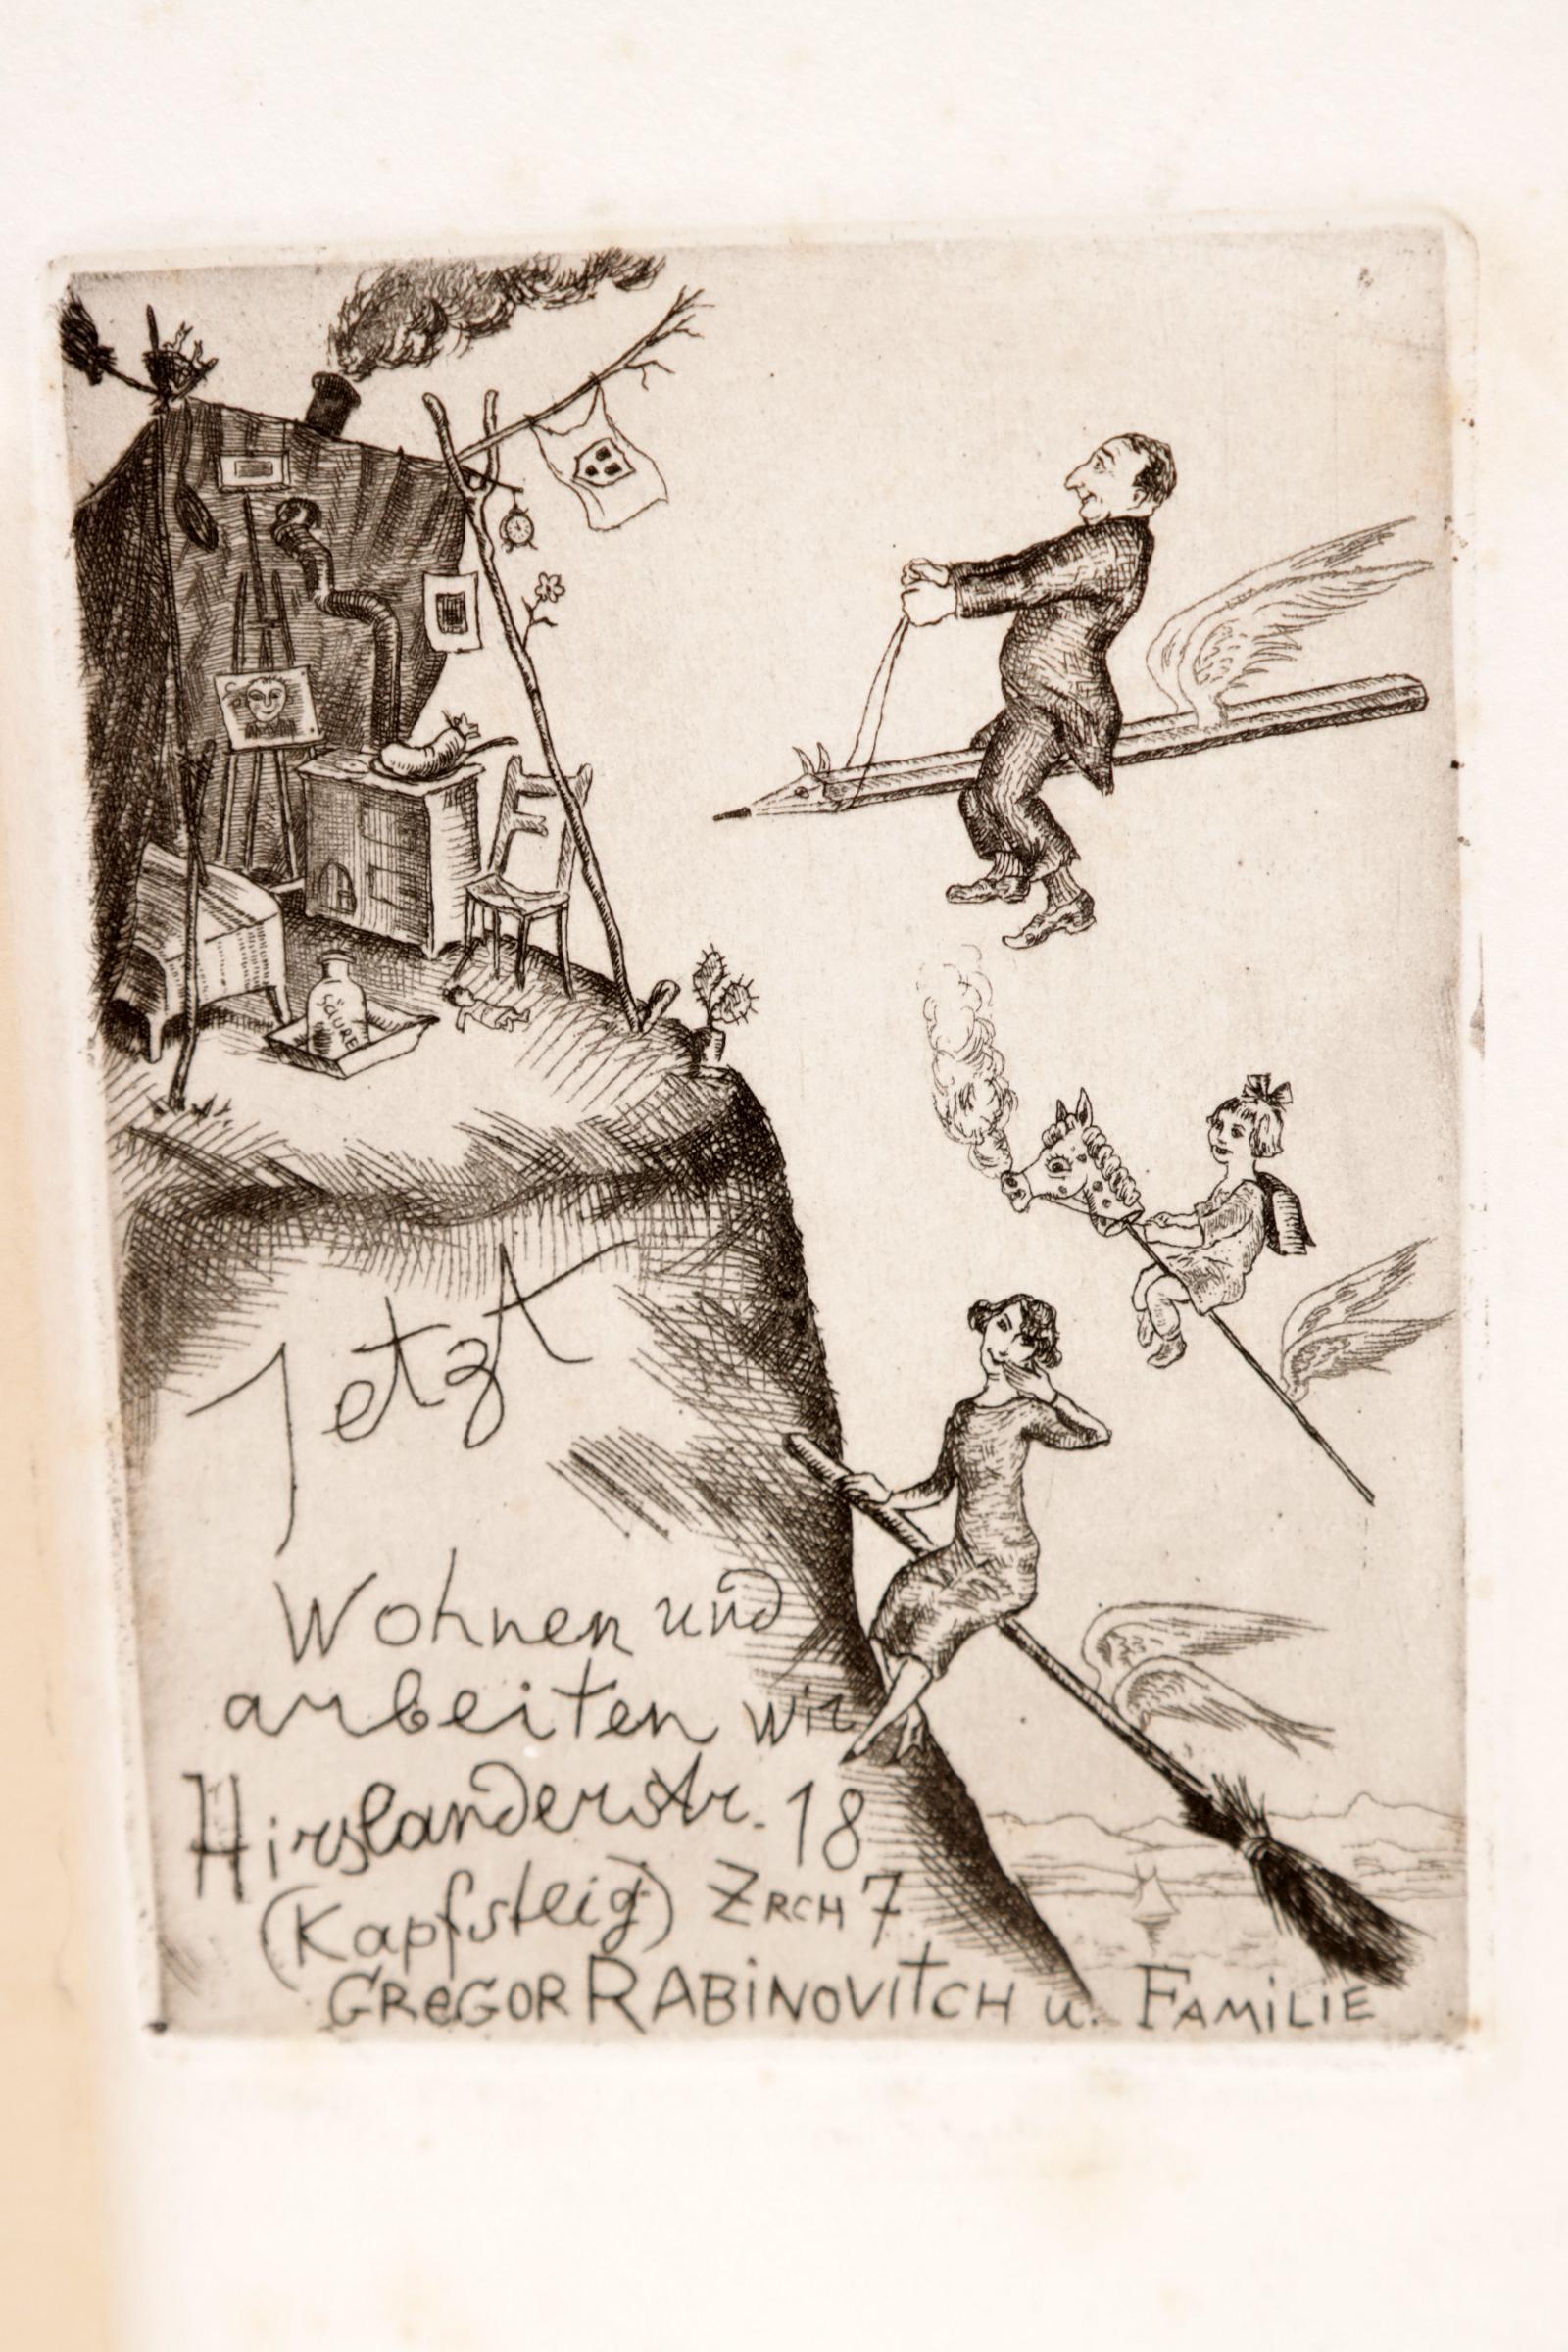 SäURE
Jetzt
Wohnen und
arbeiten wir
Hirslanderstr. 18
(Kapfsteig) ZRCH 7
GREGOR RABINOVITCH u. FAMILIE